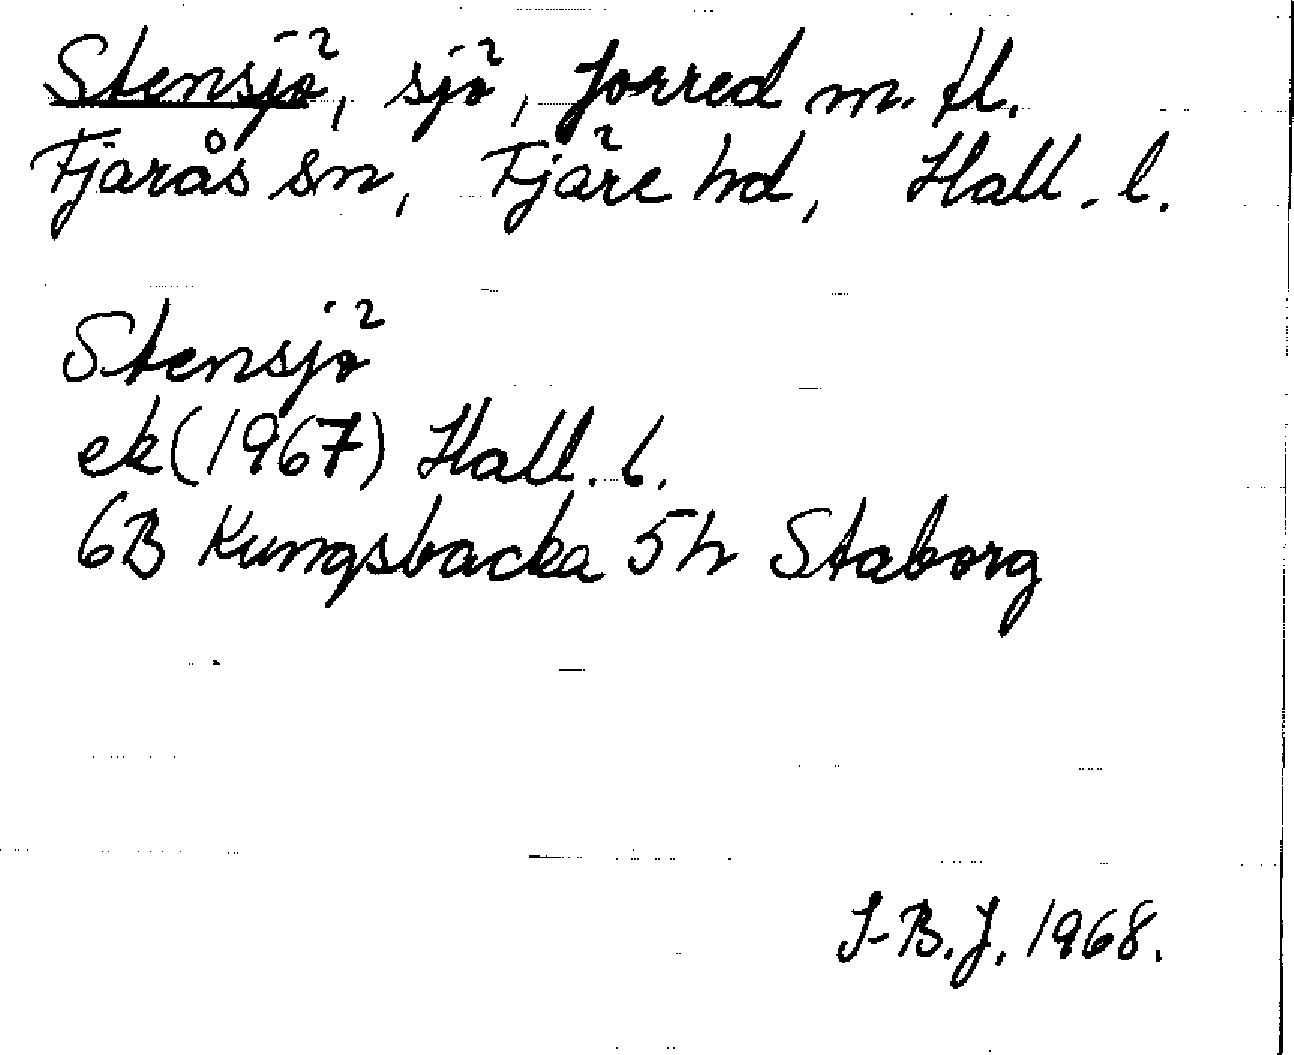 Stensjö, sjö, Jorred m. fl.
Fjärås sn, Fjäre hd, Hall. l.
Stensjö
ek (1967) Hall. l.
6B Kungsbacka 5h Staborg
I-B.J. 1968.